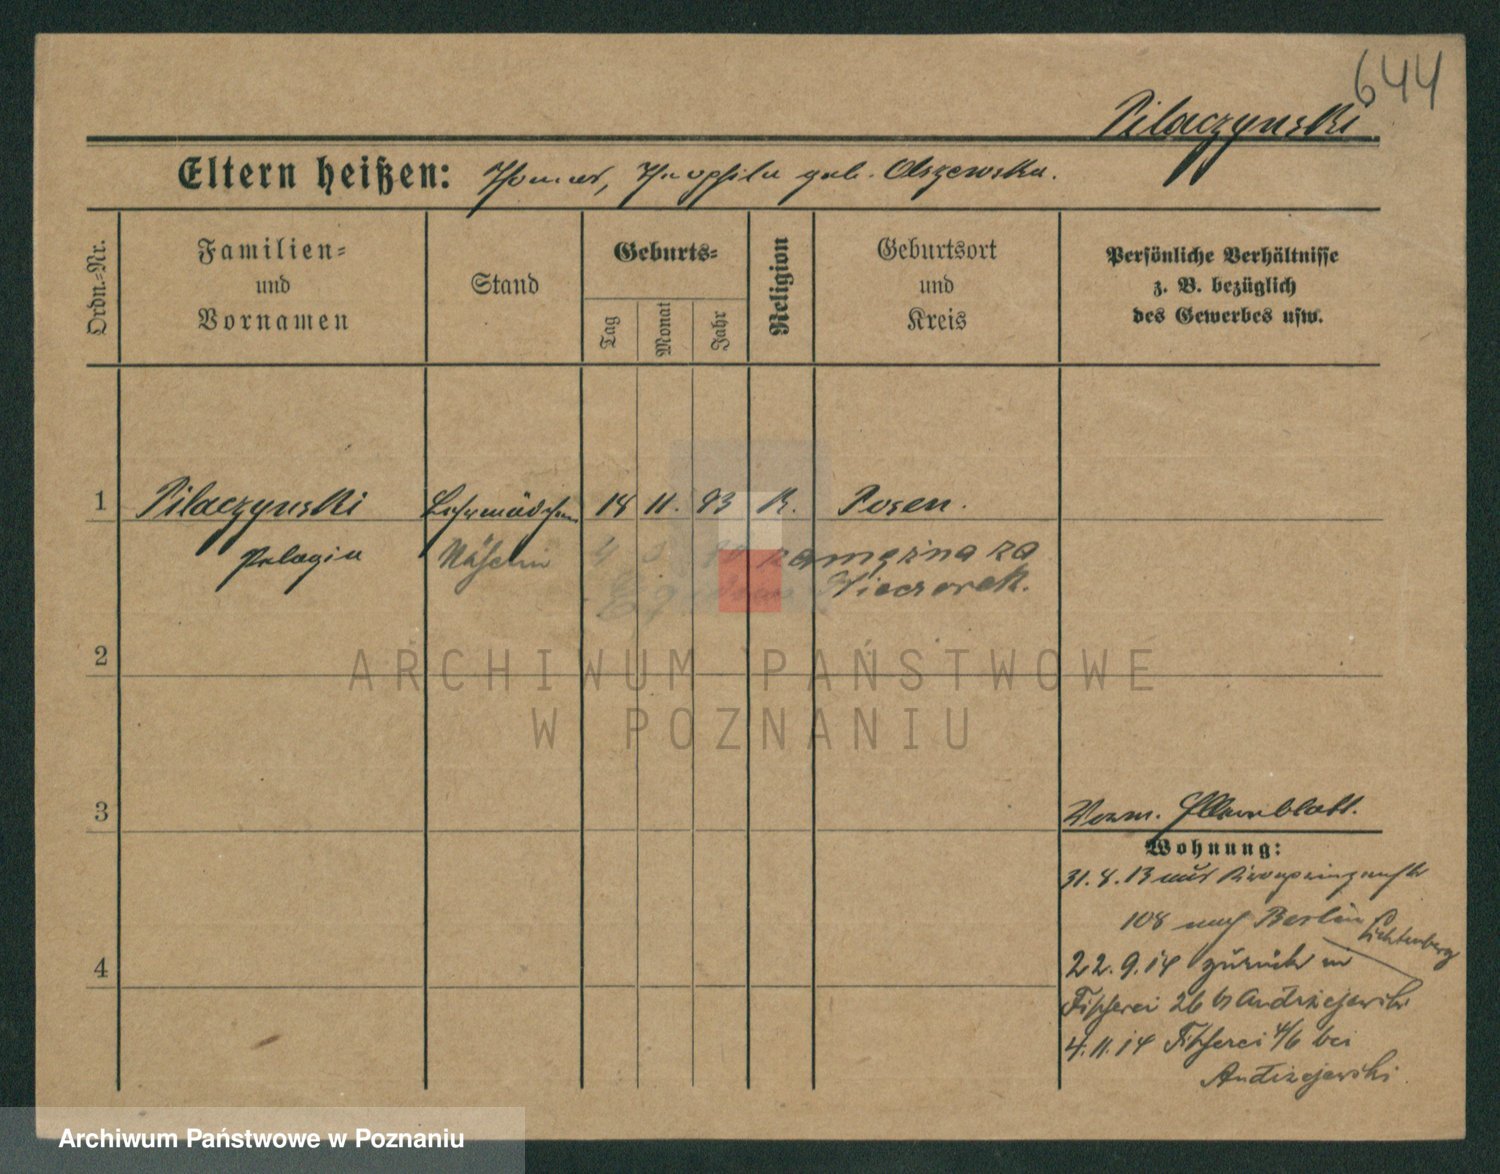 644
Pilaczynski
Eltern heißen: Thomas, Theophila geb. Olszewska.
Ordn.-Nr.
Familien-
und
Vornamen
Stand
Geburts-
Tag
Monat
Jahr
Religion
Geburtsort
und
Kreis
Persönliche Verhältnisse
z. B. bezüglich
des Gewerbes usw.
1 Pilaczynski Lehrmädchen 18 11. 93 K. Posen.
Pelagia Näherin 4 zamężna za
Wieczorek.
2
ARCHIWUM PAŃSTWOWE
W POZNANIU
3
Verm. Elternblatt.
Wohnung:
31.8.13 aus Kronprinzenstr
108 nach Berlin Lichtenberg
22.9.14 zurück
4
Fischerei 26 b Andrzejewski
4.11.14 Fischerei 4/6 bei
Andrzejewski
Archiwum Państwowe w Poznaniu